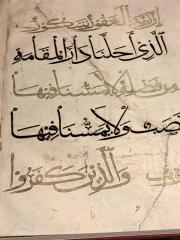 إن ربنا لغفور شكور
الذي أحلنا دار المقامة
من فضله لا يمسنا فيها
نصب ولا يمسنا فيها
والذين كفروا